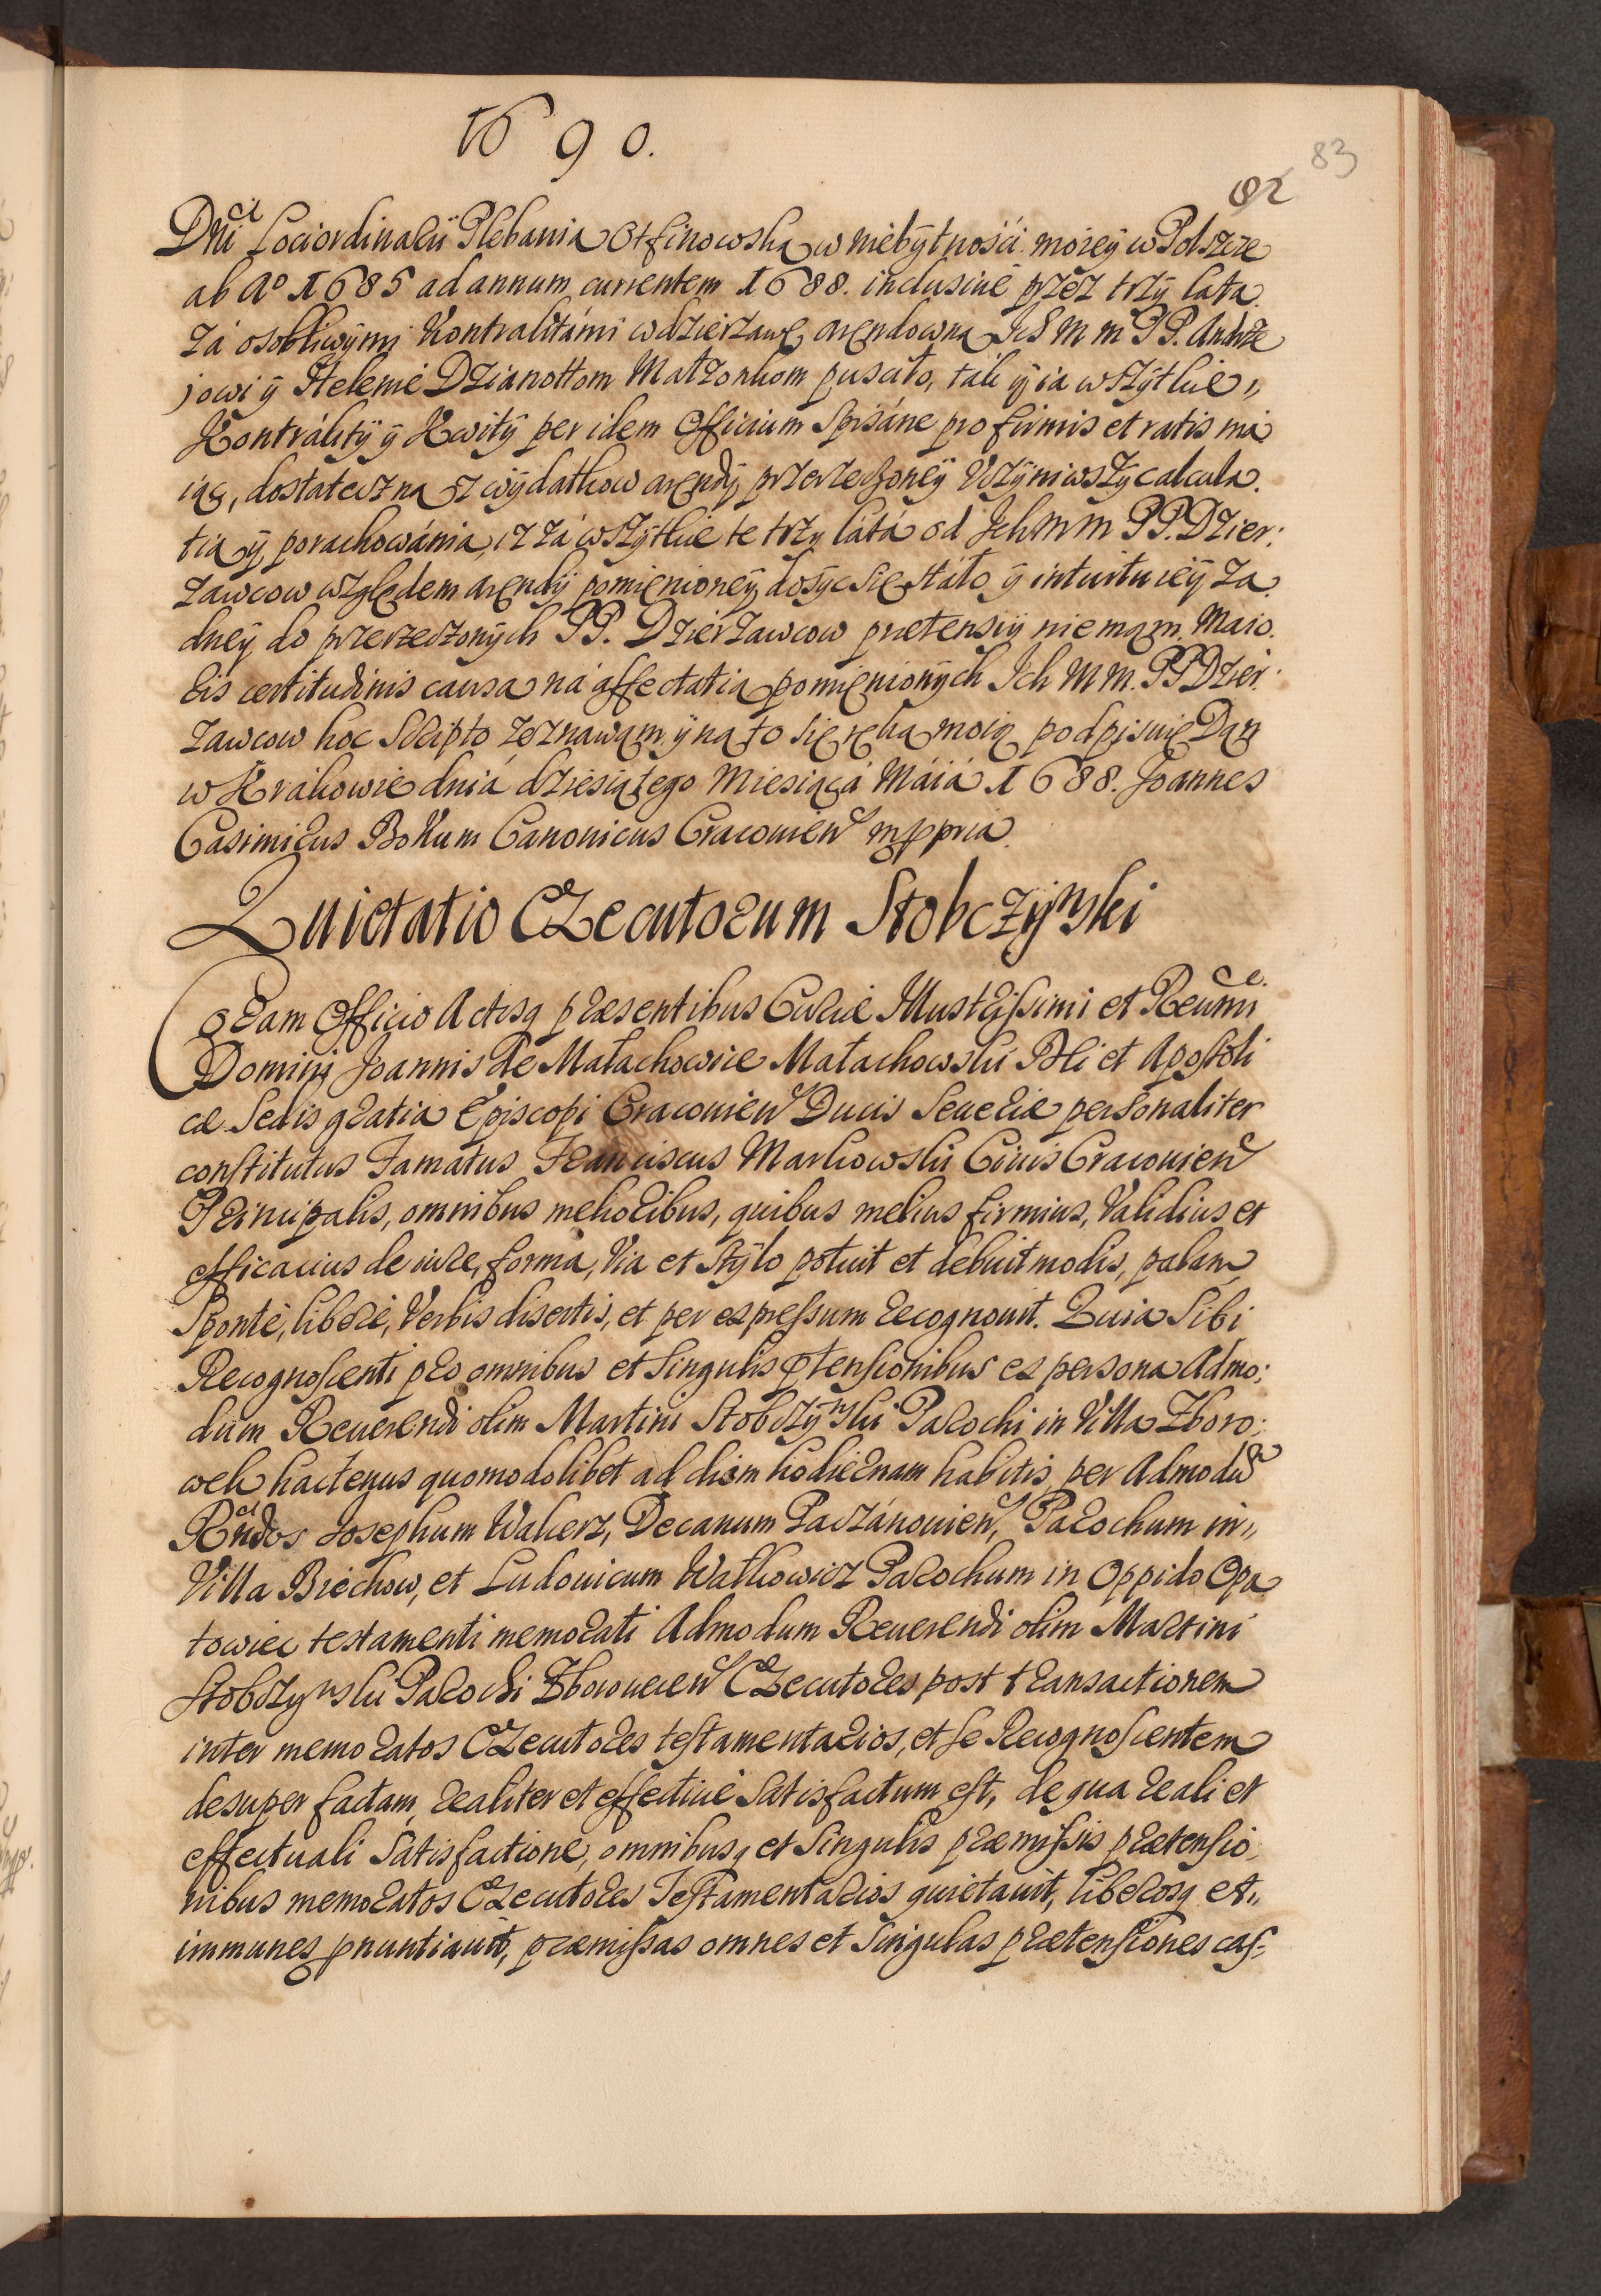 1690.
83
82
Dni Lociordinarii Plebania Otfinowska w niebytnośći moiey w Polszcze
ab Aº 1685 ad annum currentem 1688. inclusiuè przez trzy lata
zá osobliwymi Kontraktámi w dzierzawę arendowną Ich M m PP. Andrze
jowi ÿ Helenie Dzianottom Małzonkom pusciło, tak ÿ ia wszÿtkie
Kontrákty ÿ Kwitÿ per idem Officium Spisáne pro firmis et ratis ma
iąc, dostateczną z wÿdatkow arendÿ przerzeczoneÿ Vczÿniwszÿ calcula.
tią ÿ porachowánia, iz zá wszÿtkie te trzy látá od Ich M m PP. Dzier:
zawcow względem arendÿ pomienioneÿ dosÿc się stáło ÿ intuitu ieÿ za
dneÿ do przerzeczonÿch PP. Dzierzawcow pretensiÿ nie mąm. Maio
ris certitudinis causa ná affectatią pomienionÿch Ich M m. PP Dzier
zawcow hoc Scripto zeznawąm ÿ na to się ręką moią podpisuię Dąn
w Krákowie dniá dziesiątego Miesiącá Máiá 1688. Joannes
Casimirus Bokum Canonicus Cracouien mppria
Quietatio Executorum Stobczÿnski
Coram Officio Actisq præsentibus Curiæ Illustrissimi et Reuermi
Domini Joannis de Małachowice Małachowski Dei et Apostoli
cæ Sedis gratia Episcopi Cracouien Ducis Seueriæ personaliter
constitutus Famatus Franciscus Markowski Ciuis Cracouien
Principalis, omnibus melioribus, quibus melius firmius, Validius et
efficacius de iure, forma, Via et Stÿlo potuit et debuit modis, palam
Sponte, liberè, Verbis disertis, et per expressum recognouit. Quia Sibi
Recognoscenti pro omnibus et Singulis prætensionibus ex persona Admo:
dum Reuerendi olim Martini Stobczÿnski Parochi in Villa Zboro:
wek hactenus quomodolibet ad diem hodiernam habitis per Admodu
Rndos Josephum Wakerz, Decanum Paczánouien, Parochum in
Villa Biechow, et Ludouicum Watkowicz Parochum in Oppido Opa
towiec testamenti memorati Admodum Reuerendi olim Martini
Stobczynski Parochi Zborouecen Executores post transactionem
inter memoratos Executores testamentarios, et se Recognoscentem
desuper factam, realiter et effectiuè Satisfactum est, de qua reali et
effectuali Satisfactione, omnibusq et Singulis præmissis prætensio
nibus memoratos Executores Testamentarios quietauit, liberosq et
immunes pnuntiauit, præmissas omnes et Singulas prætensiones cas-